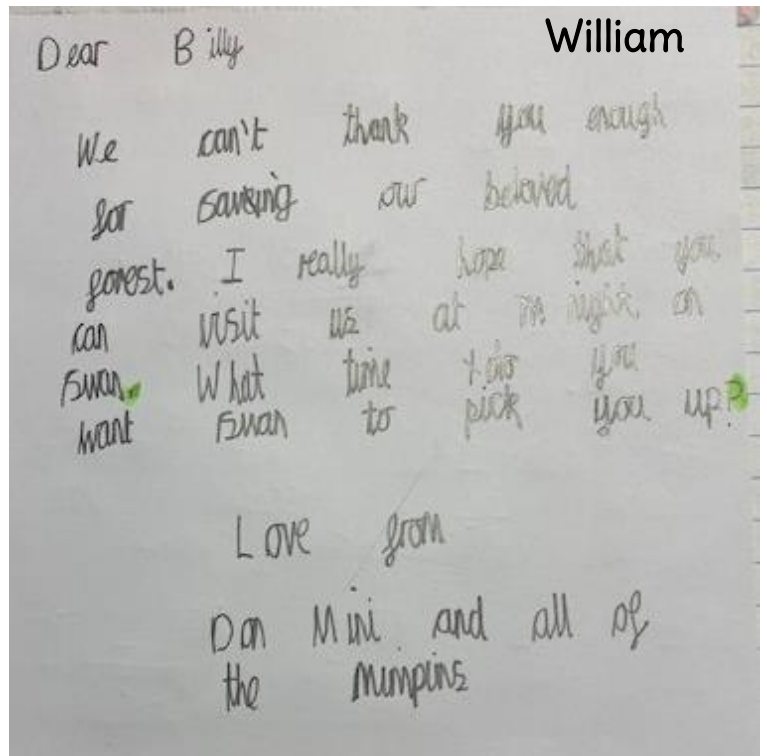 Dear Billy William
We can't thank you enough
for saveing our beloved
forest. I really hope that you
can visit us at night, on
swan. What time do you
want swan to pick you up?
Love from
Don Mini and all of
the minpins